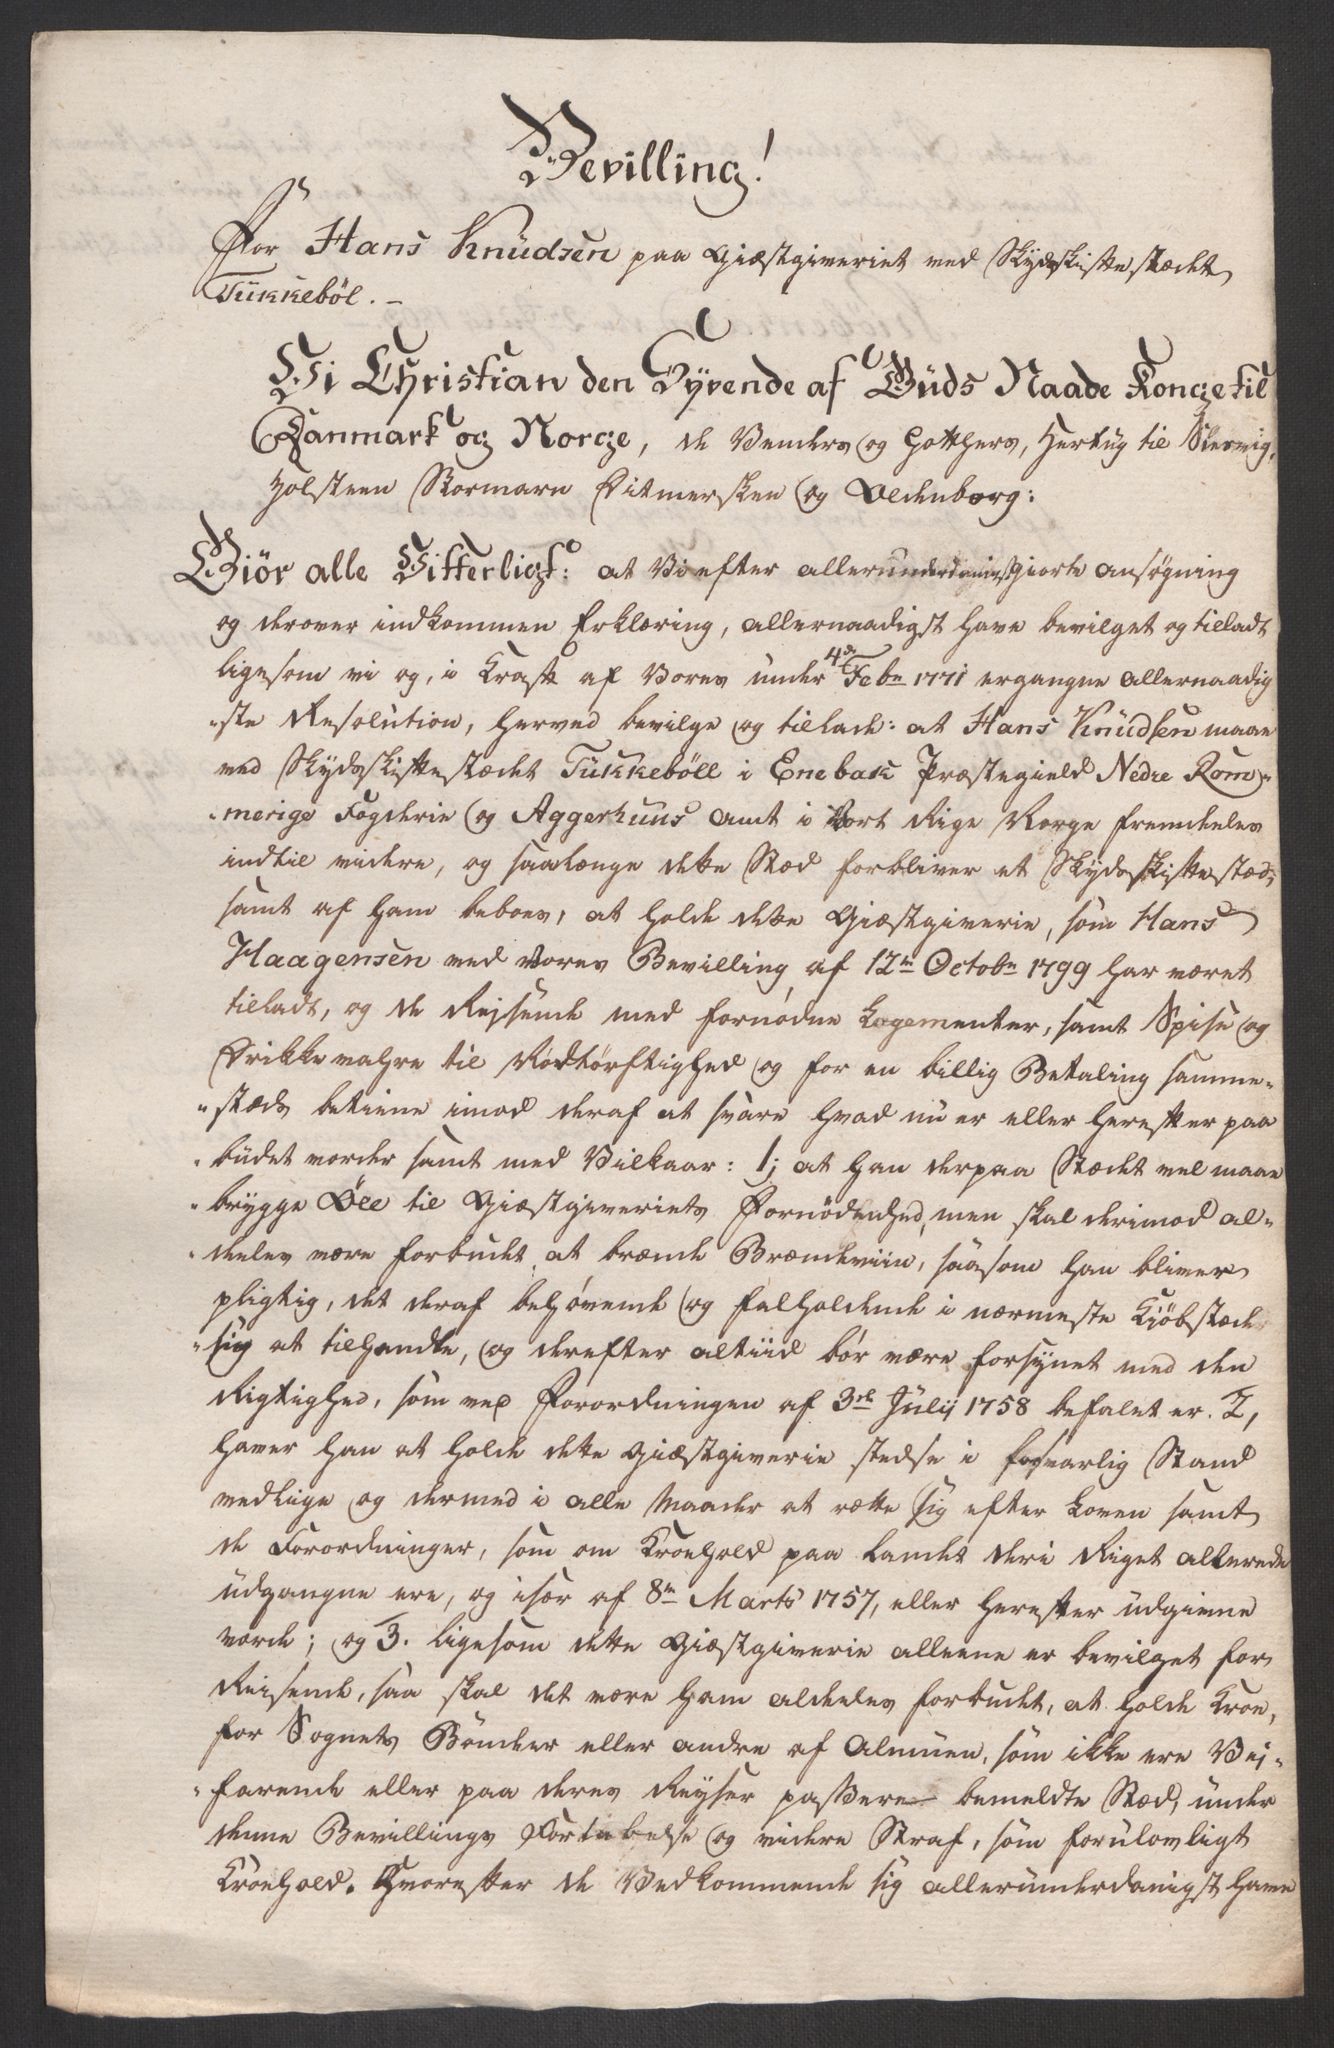 Bevilling!
For Hans Knüdsen paa Giæstgiveriet ved Skydsskiftestædet
Tükkeböl. -
Vi Christian den Syvende af Güds Naade Konge til
Danmark og Norge, de Venders og Gotthers, Hertüg til Slesvig,
Holsteen Stormarn Ditmersken og Oldenborg:
Giör alle Vitterligt: at Vi efter allerunderdanigst giorte ansøgning
og derover indkommen Erklæring, allernaadigst have bevilget og tilladt
ligesom vi og, i Kraft af Vores ünder 4de Febr 1771 ergangne allernaadig
"ste Resolution, herved bevilge og tillade: at Hans Knüdsen maae
ved Skydsskiftestædet Tükkeböll i Enebak Præstegield Nedre Rom-
"merige Fogderie og Aggerhuus Amt i Vort Rige Norge fremdeles
indtil videre, og saalænge dette Stæd forbliver et Skydsskiftestæd,
samt af ham beboes, at holde dette Giæstgiverie, som Hans
Haagensen ved Vores Bevilling af 12te Octobr 1799 har været
tilladt, og de Rejsende med fornødne Logementer, samt Spise og
Drikkevahre til Nødtørftighed og for en billig Betaling samme-
"stæds betiene imod deraf at svare hvad nü er eller herefter paa
"büdet vorder samt med Vilkaar: 1; at han derpaa Stædet vel maae
brygge Öll til Giæstgiveriets Fornödenhed, men skal derimod al-
"deles være forbudet at brænde Brændeviin, saasom han bliver
pligtig, det deraf behövende og falholdende i nærmeste Kiöbstæd
sig at tilhandle, og derefter altiid bør være forsynet med den
Rigtighed, som ved Forordningen af 3die Jülij 1758 befalet er. 2,
haver han at holde dette Giæstgiverie stedse i forsvarlig Stand
vedliige og dermed i alle Maader at rette sig efter Loven samt
de Forordninger, som om Kroehold paa Landet deri Riget allerede
üdgangne ere, og især af 8de Marts 1757, eller herefter üdgivne
vorde; og 3. ligesom dette Giæstgiverie alleene er bevilget for
Reisende, saa skal det være ham aldeles forbudet, at holde Kroe,
for Sognets Bönder eller andre af Almüen, som ikke ere Vej-
"farende eller paa deres Reyser passere bemeldte Stæd, ünder
denne Bevillings Fortabelse og videre Straf, som forülovligt
Kroehold. Hvorefter de Vedkommende sig alleründerdanigst have